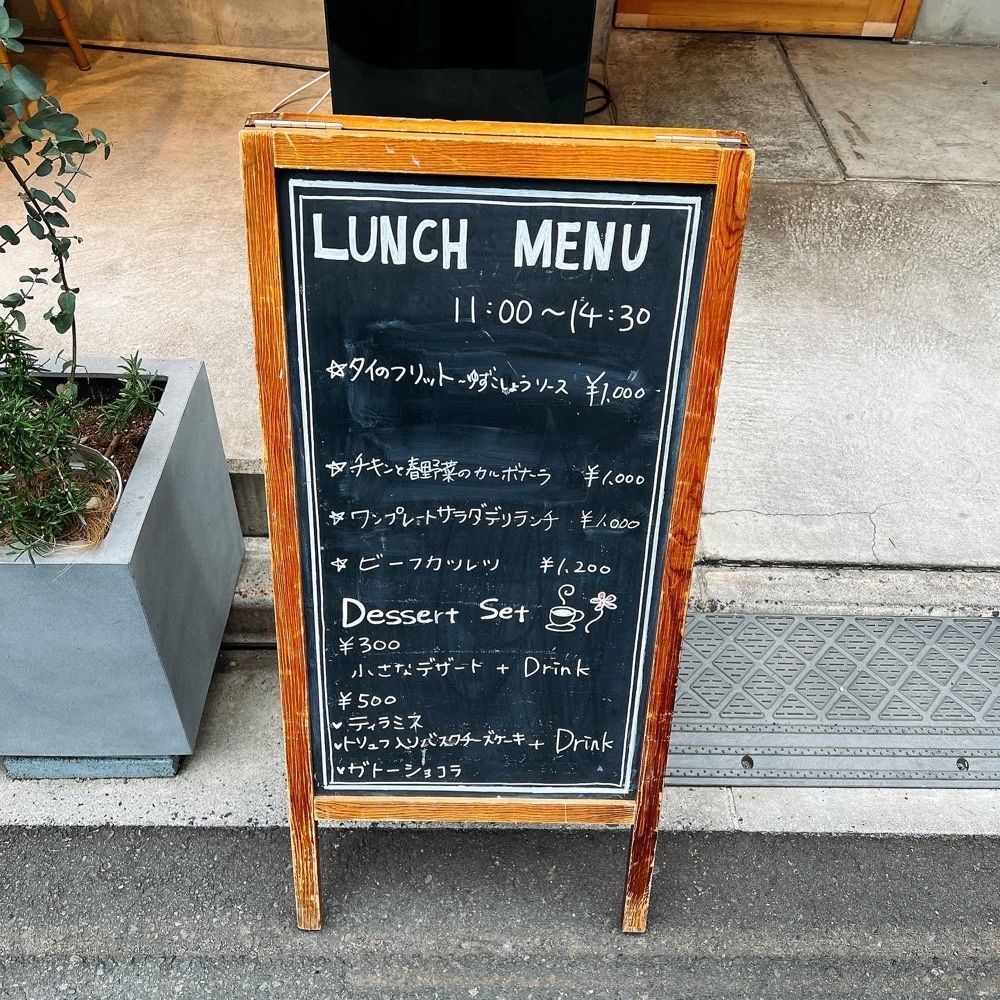 LUNCH MENU
11:00～14:30
☆タイのフリット~ゆずこしょうソース ¥1,000
☆チキンと春野菜のカルボナーラ ¥1,000
☆ワンプレートサラダデリランチ ¥1,000
☆ビーフカツレツ ¥1,200
Dessert Set
¥300
小さなデザート + Drink
¥500
♥ティラミス
♥トリュフ入りバスクチーズケーキ + Drink
♥ガトーショコラ